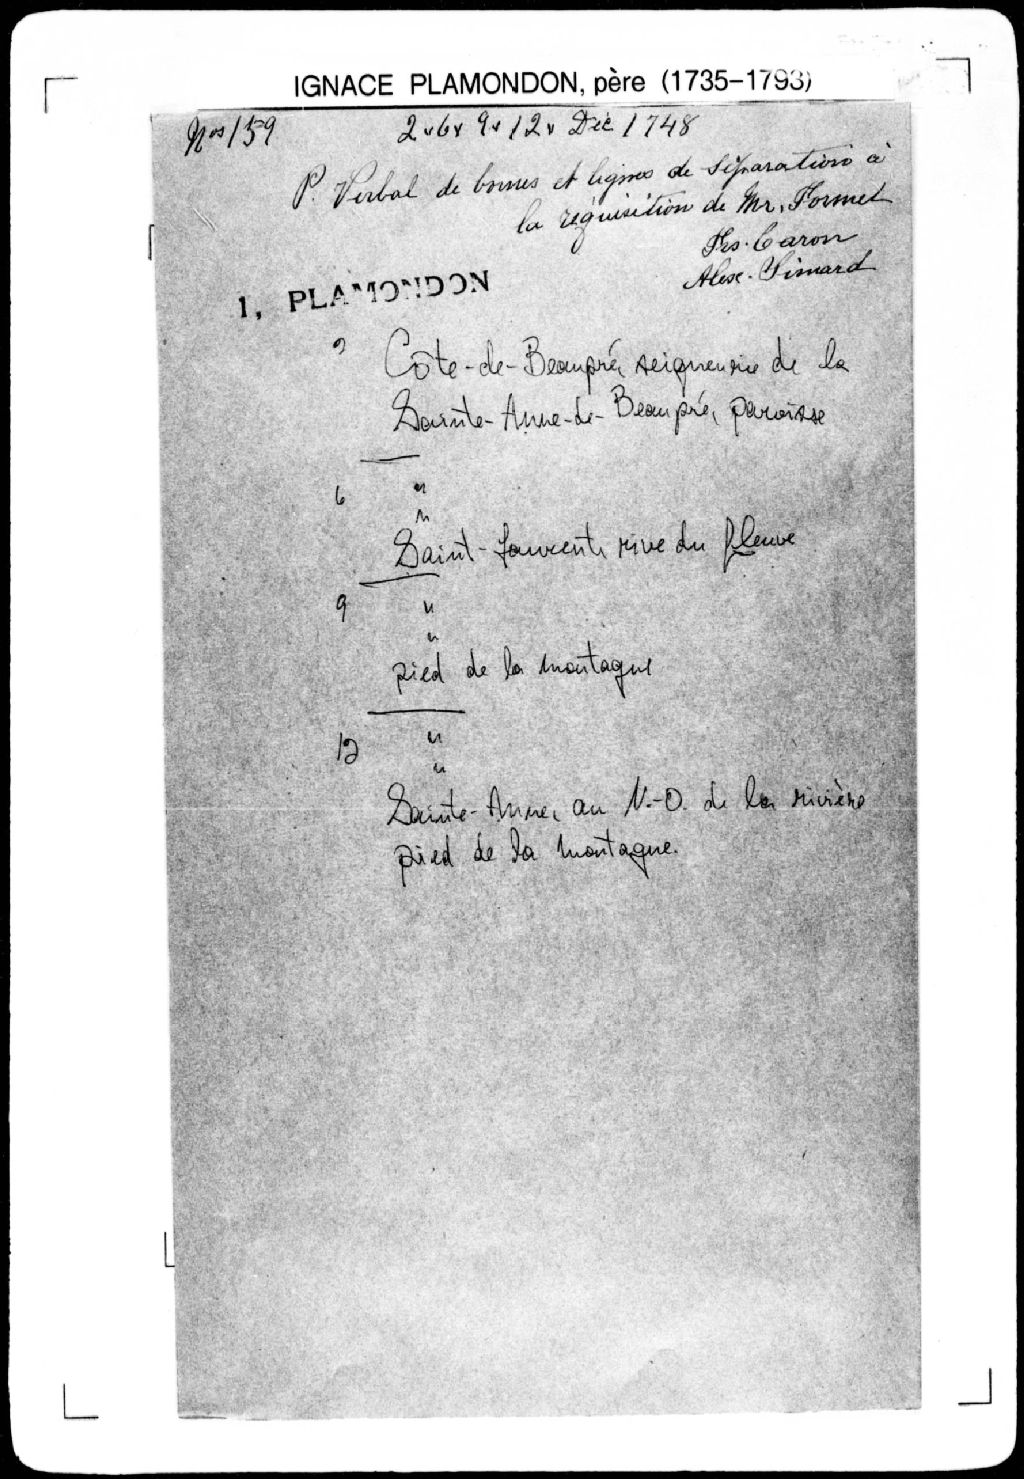 IGNACE PLAMONDON, père (1735–1793)
Nos 159 2 . 6 . 9 . 12 . Déc 1748
P. Verbal de bornes et lignes de séparation à
la réquisition de Mr. Formel
Frs. Caron
Alex. Simard
1, PLAMONDON
2 Côte-de-Beaupré, seigneurie de la
Sainte-Anne-de-Beaupré, paroisse
6 "
"
Saint-Laurent, rive du fleuve
9 "
"
pied de la montagne
12 "
"
Sainte-Anne, au N.-O. de la rivière
pied de la montagne.